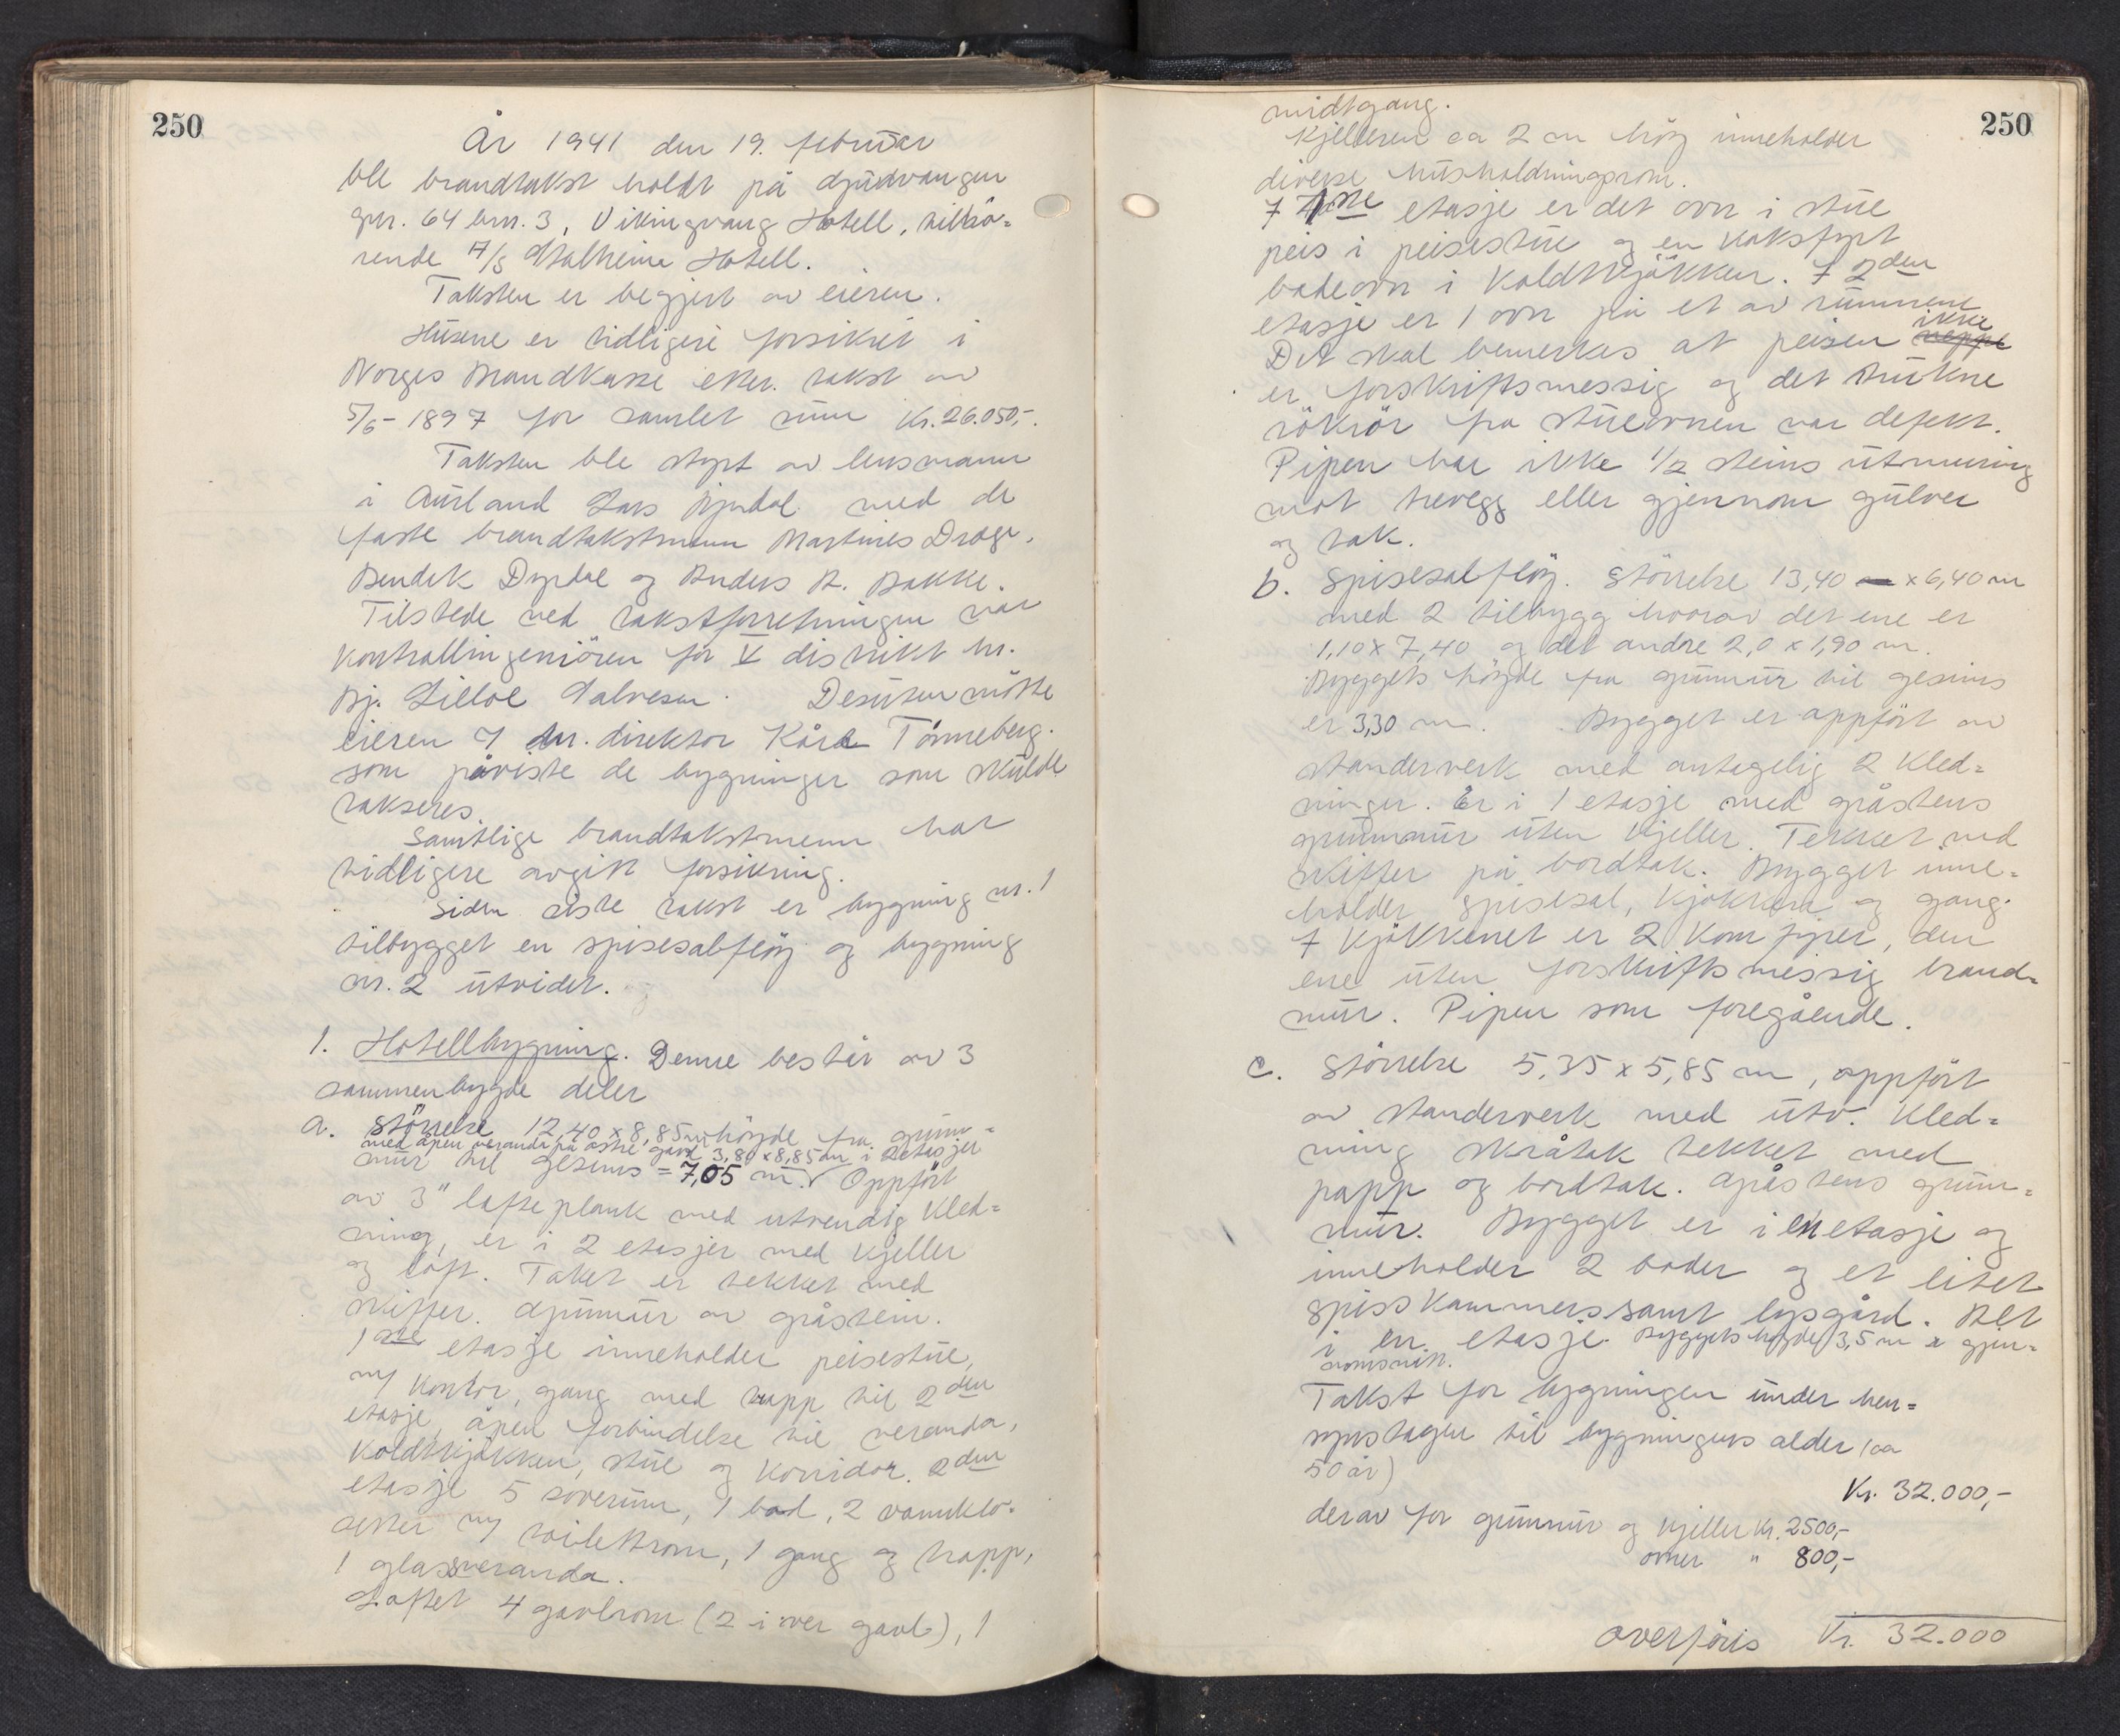 250
År 1941 den 19. februar
ble brandtakst holdt på Gudvangen
gnr. 64 brn. 3, Vikingvang Hotell, tilhö-
rende A/S Stalheim Hotell.
Taksten er begjert av eieren.
Husene er tidligere forsikret i
Norges Brandkasse etter takst av
5/6-1897 for samlet sum kr. 26.050,-.
Taksten ble styrt av lensmann
i Aurland Lars Bjødal med de
faste brandtakstmenn Martines Drage,
Bendik Dyrdal og Anders A. Bakke.
Tilstede ved takstforretningen var
kontrollingeniören for V distrikt hr.
Bj. Lilloe Salvesen. Desuten mötte
eieren v/ hr. direktör Kåre Tönneberg.
som påviste de bygninger som skulde
takseres.
Samtlige brandtakstmenn har
tidligere avgitt forsikring.
Siden siste takst er bygning nr. 1
tilbygget en spisesalflöy og bygning
nr. 2 utvidet.
1. Hotellbygning. Denne består av 3
sammenbygde deler
a. Störrelse 12,40 x 8,85 m höyde fra grunn-
med åpen veranda på östre gavl 3,80 x 8,85 m i 2 etasjer
mur til gesims = 7,05 m. √ Oppfört
av 3" lafteplank med utvendig kled-
ning, er i 2 etasjer med kjeller
og loft. Taket er tekket med
skiffer. Grunnmur av gråstein.
1ste etasje inneholder peisestue,
m/ kontor, gang med trapp til 2den
etasje, åpen forbindelse til veranda,
koldtkjökken, stue og korridor. 2den
etasje 5 soverum, 1 bad, 2 vannklo-
setter m/ toilettrom, 1 gang og trapp,
1 glassveranda.
Loftet 4 gavlrom (2 i hver gavl), 1
250
midtgang.
Kjelleren ca 2 m höy inneholder
diverse husholdningsrom.
I 1ste etasje er det ovn i stue
peis i peisestue og en koksfyrt
badeovn i koldtkjökken. I 2den
etasje er 1 ovn på et av rummene
ikke
Det skal bemerkes at peisen neppe
er forskriftsmessig og det brukne
rökrör fra stueovnen var defekt.
Pipen har ikke 1/2 steins utmuring
mot trevegg eller gjennom gulver
og tak.
b. Spisesalflöy. Störrelse 13,40 m x 6,40 m
med 2 tilbygg hvorav det ene er
1,10 x 7,40 og det andre 2,0 x 1,90 m.
Byggets höyde fra grunnmur til gesims
er 3,30 m. Bygget er oppfört av
standerverk med antagelig 2 kled-
ninger. Er i 1 etasje med gråstens
grunnmur uten kjeller. Tekket med
skiffer på bordtak. Bygget inne-
holder spisesal, kjökken og gang.
I kjökkenet er 2 komfyrer, den
ene uten forskriftsmessig brand-
mur. Pipen som foregående.
c. Störrelse 5,35 x 5,85 m, oppfört
av standerverk med utv. kled-
ning skråtak tekket med
papp og bordtak. Gråstens grunn-
mur. Bygget er i en etasje og
inneholder 2 boder og et litet
spisskammers samt lysgård. Alt
i en etasje. Byggets höyde 3,5 m i gjen-
nomsnitt.
Takst for bygningen under hen-
synstagen til bygningens alder (ca
50 år)
Kr. 32.000,-
derav for grunnmur og kjeller Kr. 2500,-
ovner " 800,-
overföris Kr. 32.000